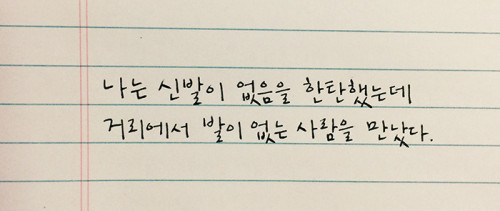 나는 신발이 없음을 한탄했는데
거리에서 발이 없는 사람을 만났다.